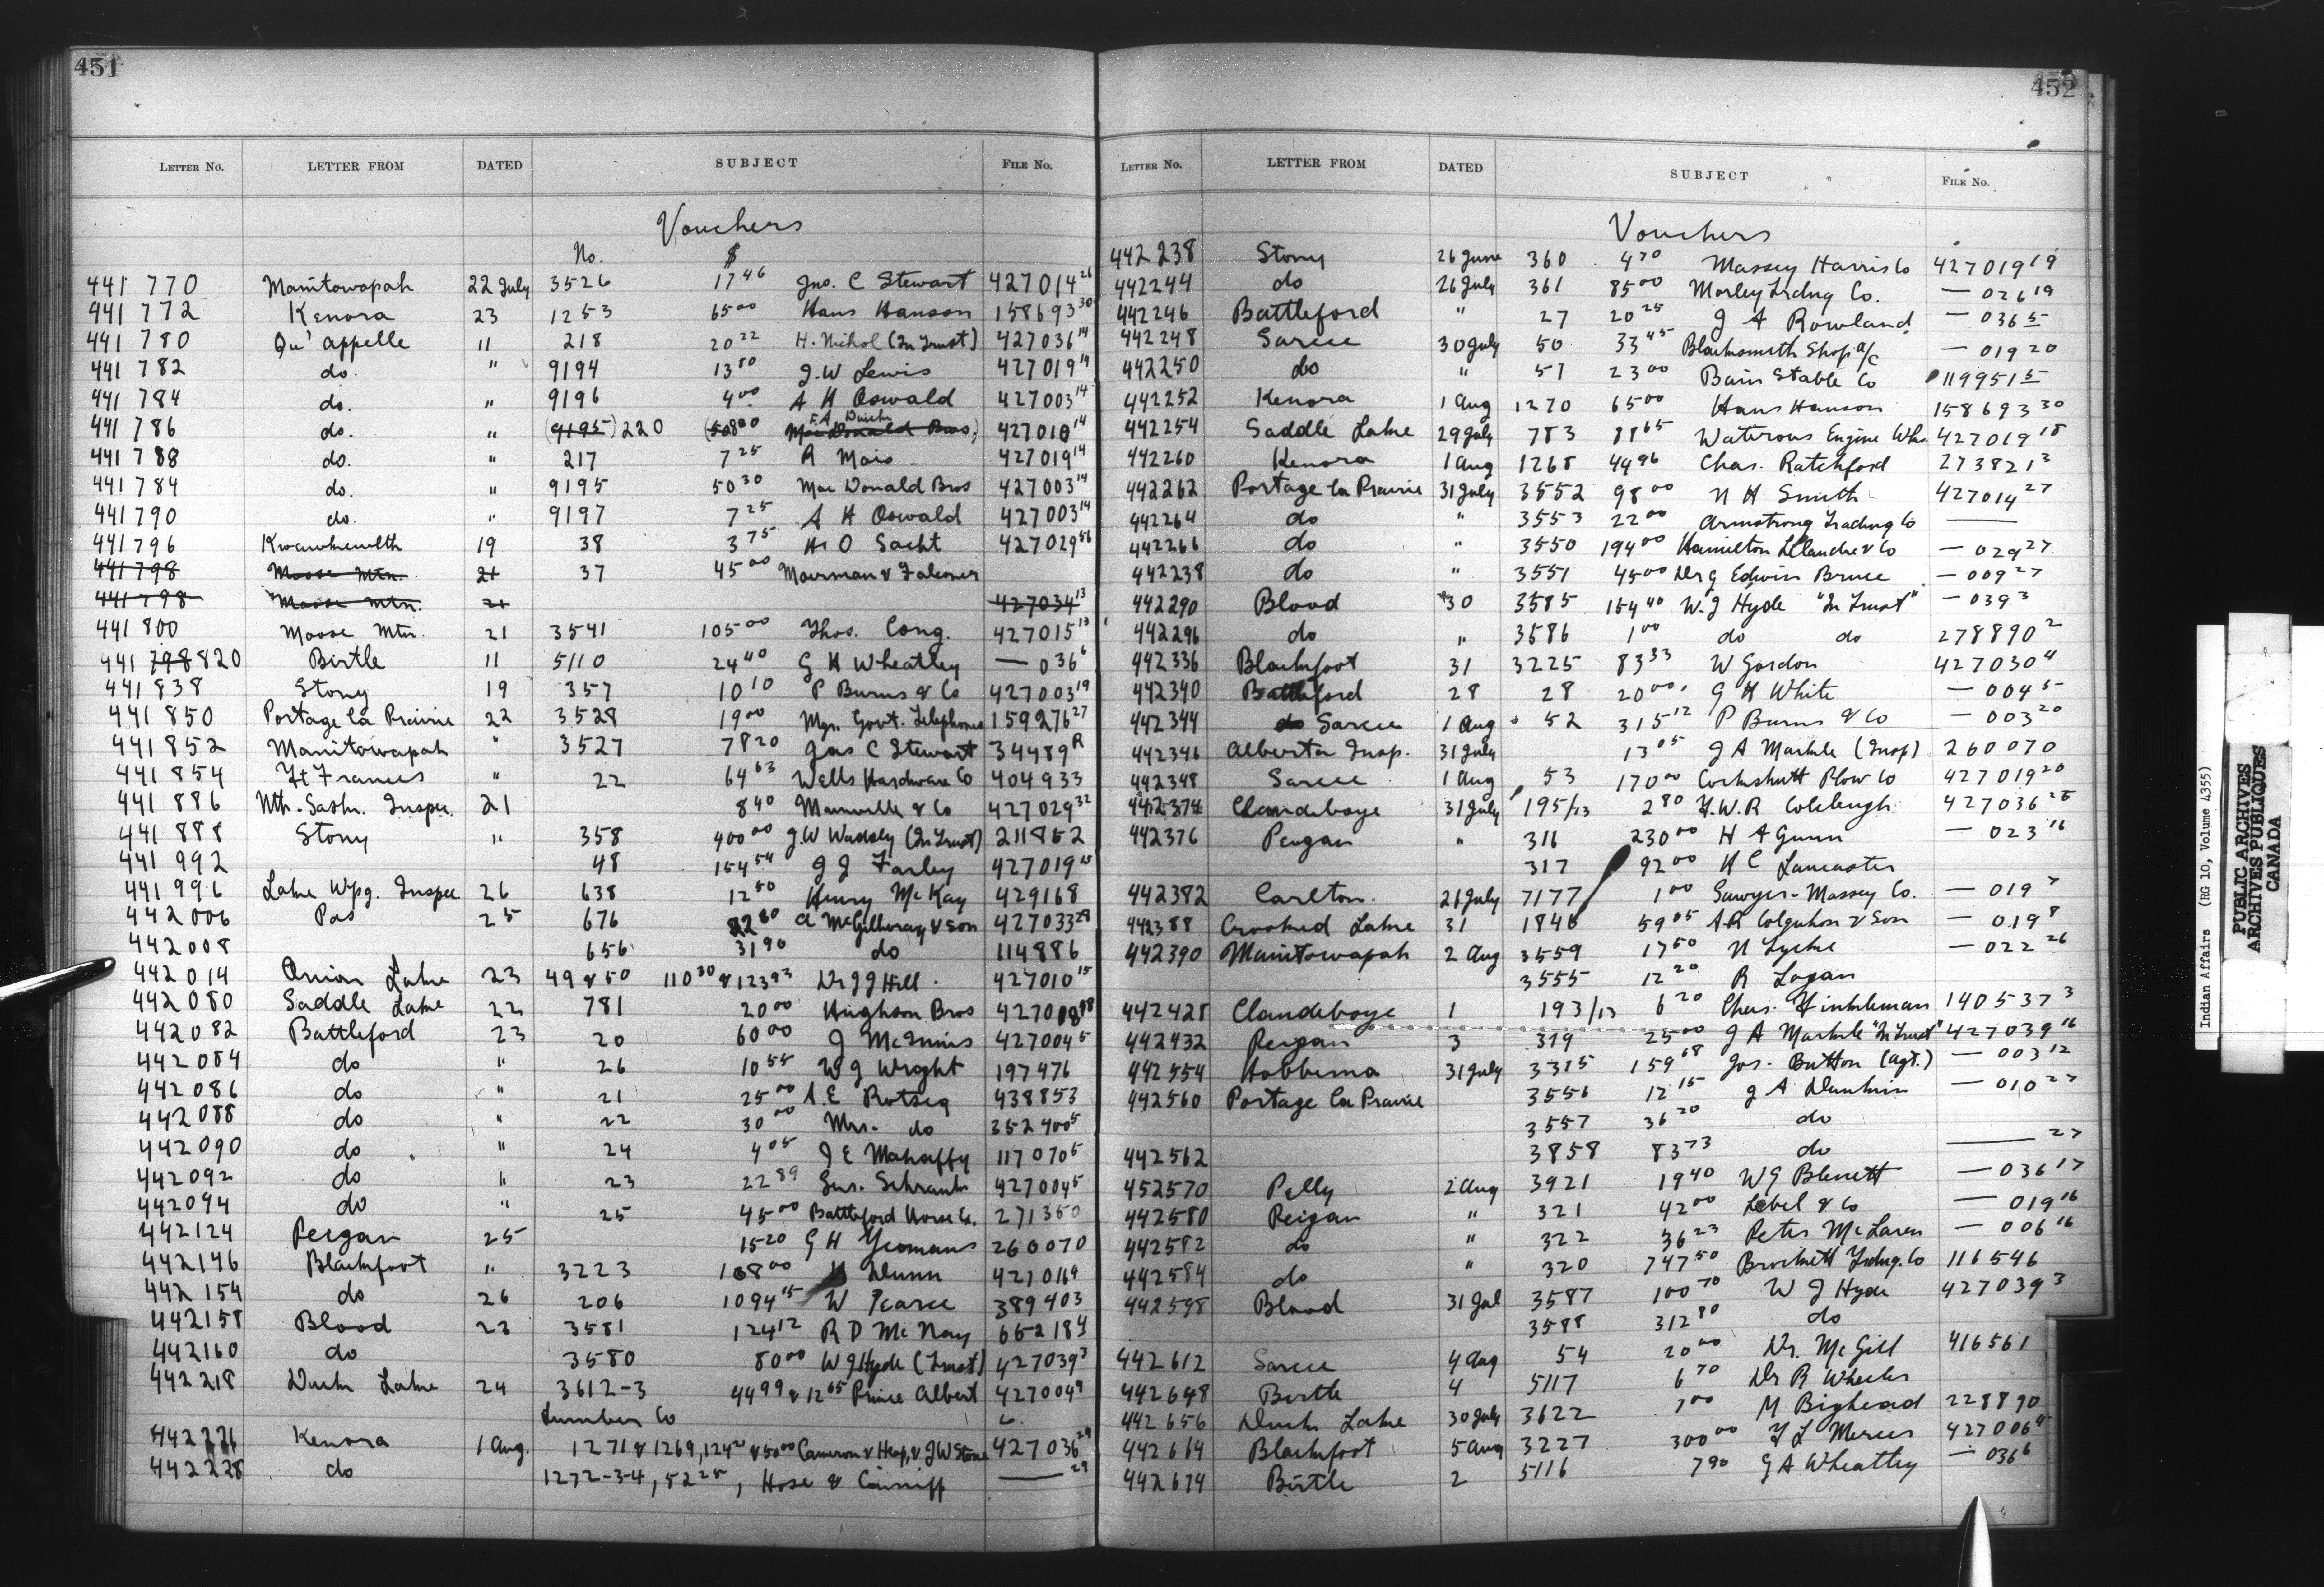 451
LETTER No. LETTER FROM DATED SUBJECT FILE No.
Vouchers
No. $
441 770 Manitowapah 22 July 3526 17 46 Jno. C Stewart 427014 26
441 772 Kenora 23 1253 65 00 Hans Hanson 158693 30
441 780 Qu'appelle 11 218 20 22 H. Nichol (In Trust) 427036 14
441 782 do. " 9194 13 80 J. W Lewis 427019 14
441 784 do. " 9196 4 00 A H Oswald 427003 14
441 786 do. " (9195) 220 F. A. Mac Donald Bros. 427010 14
441 788 do. " 217 7 25 R Mais 427019 14
441 784 do. " 9195 50 30 Mac Donald Bros 427003 14
441 790 do. " 9197 7 25 A H Oswald 427003 14
441 796 Kwawkewlth 19 38 3 75 H. O 427029 56
441 798 Moose Mtn. 21 37 45 00 Moerman & Falconer
441 798 Moose Mtn. 21 427034 13
441 800 Moose Mtn. 21 3541 105 00 Thos. Cong. 427015 13
441 798 820 Birtle 11 5110 24 40 G H Wheatley — 036 6
441 838 Stony 19 357 10 10 P Burns & Co 427003 19
441 850 Portage la Prairie 22 3528 19 00 Mgr. Govt. Telephones 159276 27
441 852 Manitowapah " 3527 78 20 Jas C Stewart 34489 R
441 854 Ft Frances " 22 64 63 Wells Hardware Co 404933
441 886 Nth. Sask. Inspec. 21 8 40 Manville & Co 427029 32
441 888 Stony " 358 400 00 J. W Wadsley (In Trust) 211852
441 992 48 154 54 J J Farley 427019
441 996 Lake Wpg. Inspec 26 638 12 50 Henry Mc Kay 429168
442 006 Pas 25 676 A McGillivray & Son 427033 28
442 008 656 31 90 do 114886
442 014 Onion Lake 23 49 & 50 110 30 & 123 93 Dr J J Hill. 427010 15
442 080 Saddle Lake 22 781 20 00 Hughson Bros
442 082 Battleford 23 20 60 00 J McInnis 427004 5
442 084 do " 26 10 55 W J Wright 197476
442 086 do " 21 25 00 A. E Rotsey 438853
442 088 do " 22 30 00 Mrs. do 352400 5
442 090 do " 24 4 05 J E Mahaffy 117070 5
442 092 do " 23 22 89 Gus. Schrank 427004 5
442 094 do " 25 45 00 Battleford Horse Co. 271350
442 124 Peigan 25 15 20 G H Yeomans 260070
442 146 Blackfoot " 3223 168 00 Dunn 427016 4
442 154 do 26 206 1094 15 W Pearce 389403
442 158 Blood 23 3581 124 12 R D Mc Nay 66218 4
442 160 do 3580 80 00 W J Hyde (Trust) 427039 3
442 218 Duck Lake 24 3612-3 44 99 & 12 65 Prince Albert 427004 9
Lumber Co
442 226 Kenora 1 Aug. 1271 & 1269, & 50 00 Cameron & Heap, & J W Stone 427036 29
442 228 do 1272-3-4, 52 25, Hose & — 29
452
LETTER No. LETTER FROM DATED SUBJECT FILE No.
Vouchers
442 238 Stony 26 June 360 4 70 Massey Harris Co 427019 19
442244 do 26 July 361 85 00 Morley Trdng Co. — 026 19
442246 Battleford " 27 20 25 J A Rowland — 036 5
442248 Sarcee 30 July 50 33 45 Blacksmith Shop a/c — 019 20
442250 do " 51 23 00 Bain Stable Co 119951 5
442252 Kenora 1 Aug 1270 65 00 Hans Hanson 158693 30
442254 Saddle Lake 29 July 783 88 65 Waterous Engine Wks. 427019 18
442260 Kenora 1 Aug 1268 44 96 Chas. Ratchford 273821 3
442262 Portage la Prairie 31 July 3552 98 00 N H Smith 427014 27
442264 do " 3553 22 00 Armstrong Trading Co ——
442266 do " 3550 194 00 Hamilton & Co — 029 27
442238 do " 3551 45 00 Dr G Edwin Bruce — 009 27
442290 Blood 30 3585 154 40 W. J Hyde "In Trust" — 039 3
442296 do " 3586 1 00 do do 278890 2
442336 Blackfoot 31 3225 83 33 W Gordon 427030 4
442340 Battleford 28 28 20 00 G H White — 004 5
442344 do Sarcee 1 Aug 52 315 12 P Burns & Co — 003 20
442346 Alberta Insp. 31 July 13 05 J A Markle (Insp) 260070
442348 Sarcee 1 Aug 53 170 00 Cockshutt Plow Co 427019 20
442374 Clandeboye 31 July 195/13 2 80 F. W. R Colcleugh 427036 25
442376 Peigan " 316 230 00 H A Gunn — 023 16
317 92 00 H C Lancaster
442382 Carlton. 26 July 7177 1 00 Sawyer-Massey Co. — 019 7
442388 Crooked Lake 31 1846 59 05 A R Colquhon & Son — 019 8
442390 Manitowapah 2 Aug 3559 17 50 N Lyche — 022 26
3555 12 20 R Logan
442428 Clandeboye 1 193/13 6 20 Chas. Finkleman 140537 3
442432 Peigan 3 319 25 00 J A Markle "In Trust" 427039 16
442554 Hobbema 31 July 3315 159 68 Jos. Button (Agt.) — 003 12
442560 Portage la Prairie 3556 12 15 J A Dunkin — 010 27
3557 36 20 do
442562 3858 83 73 do —— 27
452570 Pelly 2 Aug 3921 19 40 W G Blewett — 036 17
442580 Peigan " 321 42 00 Lebel & Co — 019 16
442582 do " 322 36 23 Peter McLaren — 006 16
442584 do " 320 747 50 Brockett Trdng. Co 116546
442598 Blood 31 Jul 3587 100 70 W J Hyde 427039 3
3588 312 80 do
442612 Sarcee 4 Aug 54 20 00 Dr. McGill 416561
442648 Birtle 4 5117 6 70 Dr R Wheeler
442656 Duck Lake 30 July 3622 7 00 M Bighead 228890
442664 Blackfoot 5 Aug 3227 300 00 F L Mercer 427006 4
442674 Birtle 2 5116 7 90 G A Wheatley — 036 6
Indian Affairs (RG 10, Volume 4355)
PUBLIC ARCHIVES
ARCHIVES PUBLIQUES
CANADA